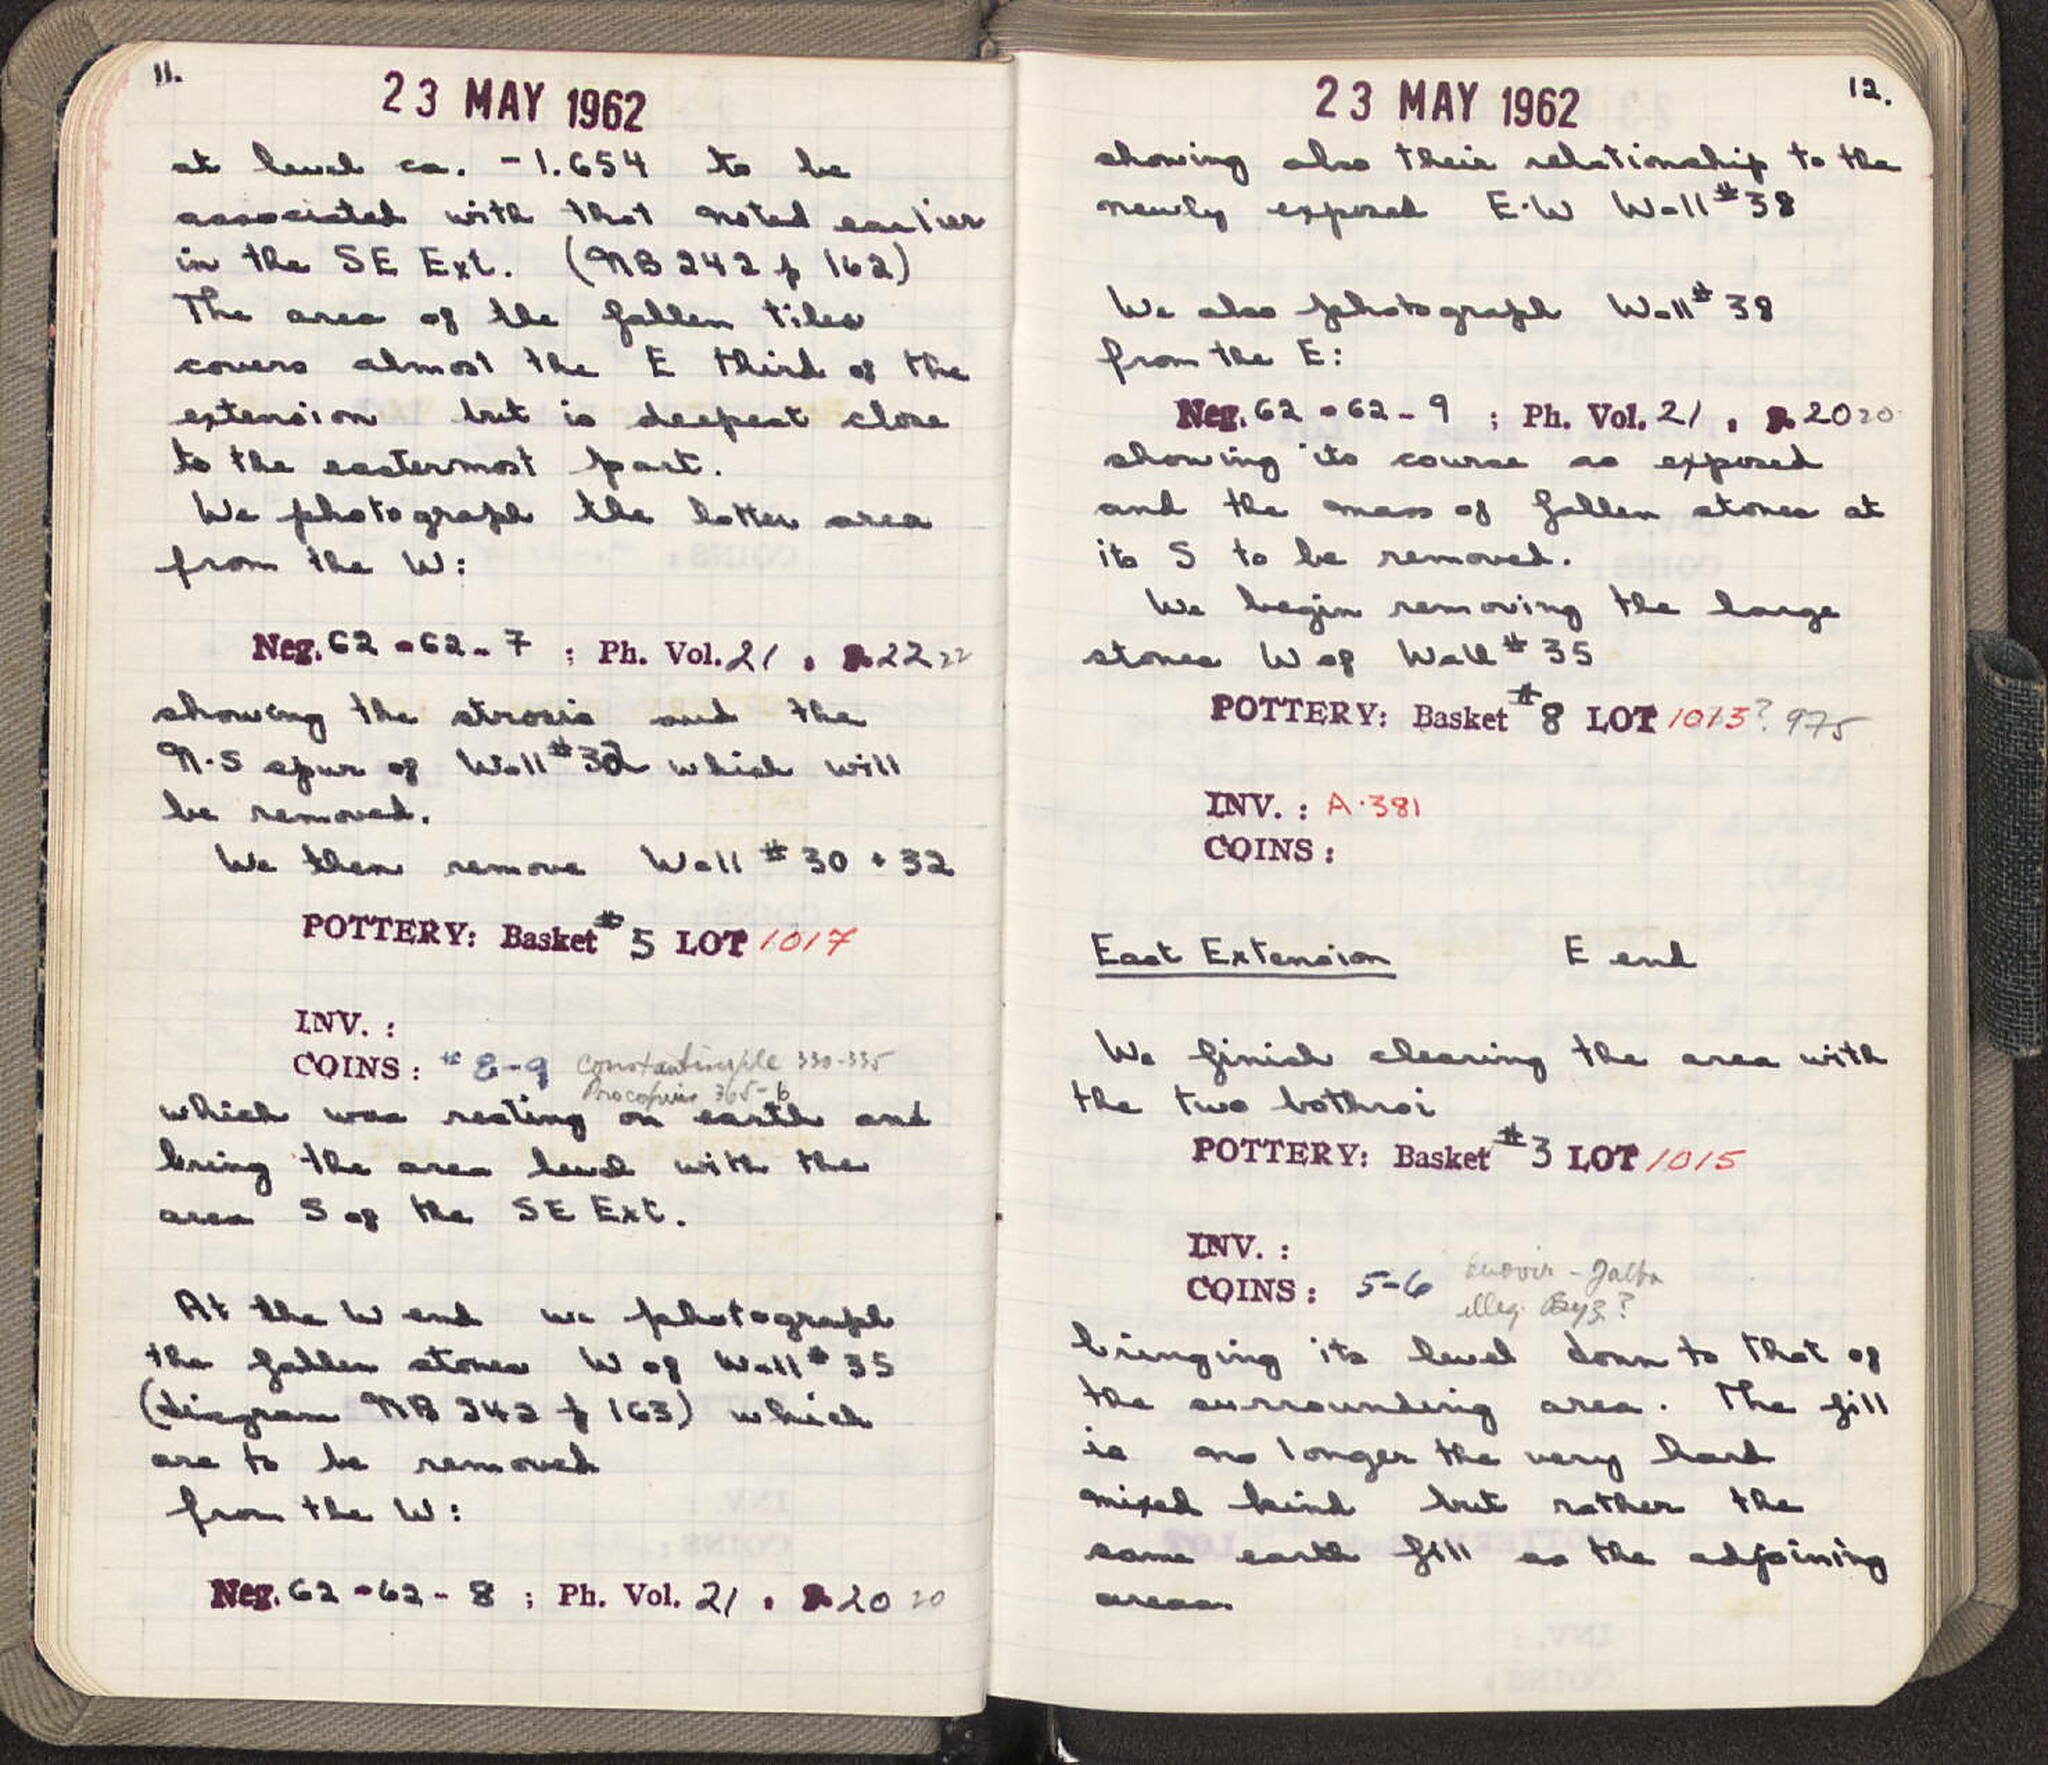 11.
23 MAY 1962
at level ca. -1.654 to be
associated with that noted earlier
in the SE Ext. (NB 242 p 162)
The area of the fallen tiles
covers almost the E third of the
extension but is deepest close
to the easternmost part.
We photograph the latter area
from the W:
Neg. 62-62-7 ; Ph. Vol. 21, p. 22 22
showing the strosis and the
N-S spur of Wall #32 which will
be removed.
We then remove Wall #30 + 32
POTTERY: Basket #5 LOT 1017
INV. :
COINS : #8-9 Constantinople 330-335
Procopius 365-6
which was resting on earth and
bring the area level with the
area S of the SE Ext.
At the W end we photograph
the fallen stones W of Wall #35
(diagram NB 242 p 163) which
are to be removed
from the W:
Neg. 62-62-8 ; Ph. Vol. 21, p. 20 20
12.
23 MAY 1962
showing also their relationship to the
newly exposed E-W Wall #38
We also photograph Wall #38
from the E:
Neg. 62-62-9 ; Ph. Vol. 21, p. 20 20
showing its course as exposed
and the mass of fallen stones at
its S to be removed.
We begin removing the large
stones W of Wall #35
POTTERY: Basket #8 LOT 1013? 975
INV. : A-381
COINS :
East Extension E end
We finish clearing the area with
the two bothroi
POTTERY: Basket #3 LOT 1015
INV. :
COINS : 5-6 duovir - Galba
illeg. Byz?
bringing its level down to that of
the surrounding area. The fill
is no longer the very hard
mixed kind but rather the
same earth fill as the adjoining
areas.